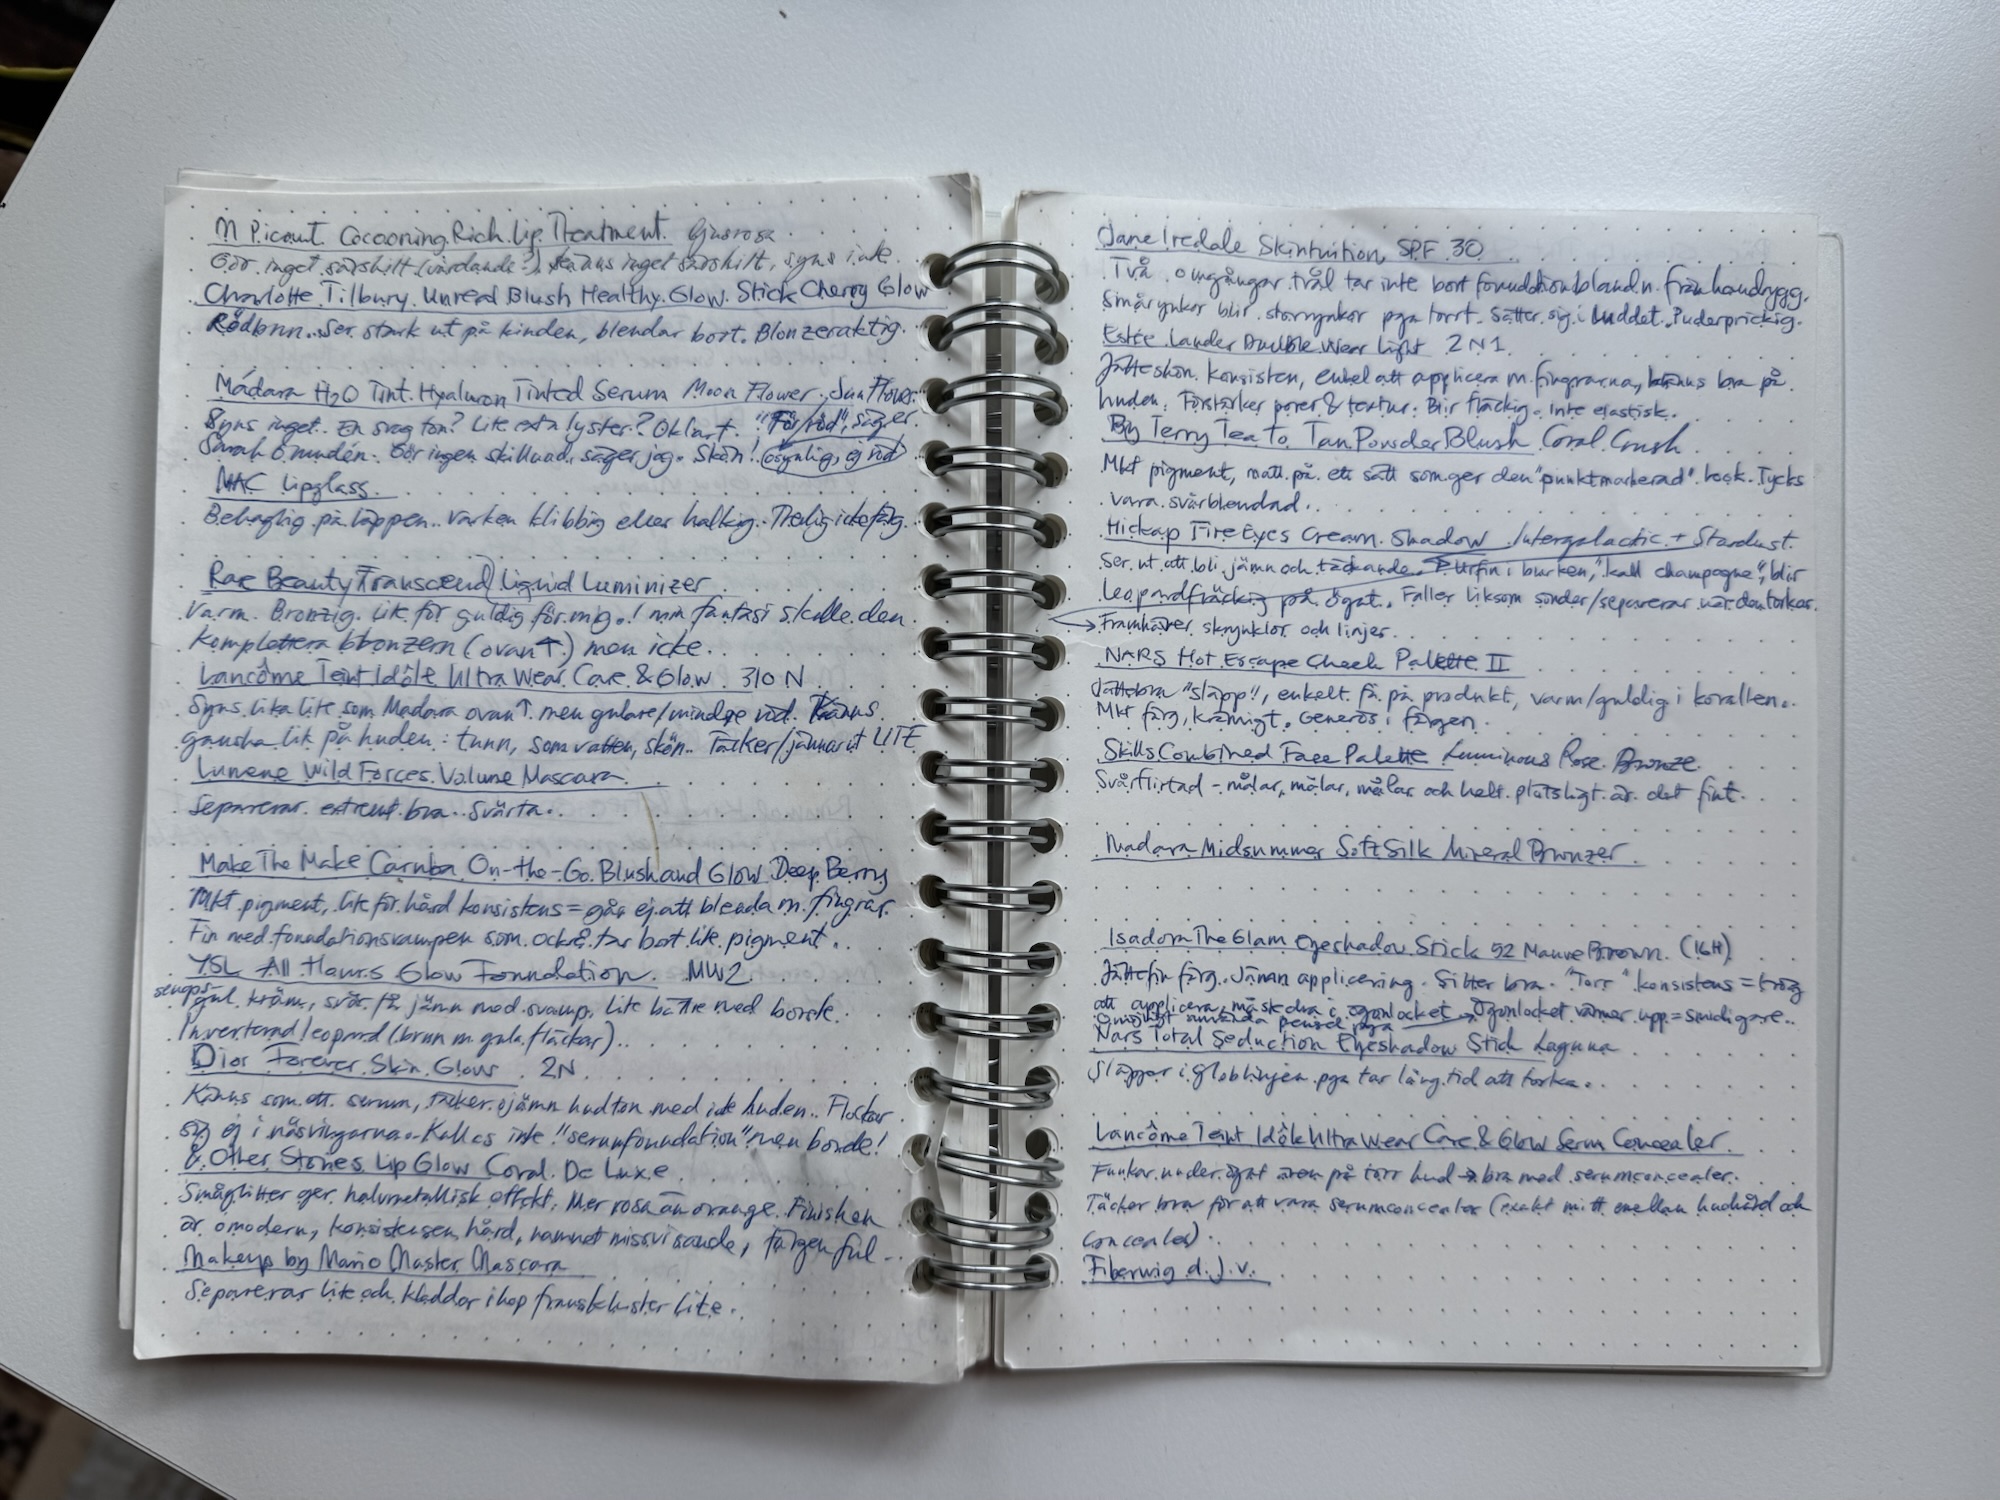 M Picaut Cocooning Rich Lip Treatment ljusrosa
Gör inget särskilt (vårdande?), känns inget särskilt, syns inte.
Charlotte Tilbury Unreal Blush Healthy Glow Stick Cherry Glow
Rödbrun. Ser stark ut på kinden, blendar bort. Blonzeraktig.
Mádara H2O Tint Hyaluron Tinted Serum Moon Flower, Sun Flower
Syns inget. En svag ton? Lite extra lyster? Oklart. "För röd", säger
Sarah Ömudén. Gör ingen skillnad, säger jag. Skön! (osynlig, ej röd)
MAC Lipglass
Behaglig på läppen. Varken klibbig eller halkig. Tredig icke färg.
Rare Beauty Transcend Liquid Luminizer
Varm. Bronzig. Lite för guldig för mig. I min fantasi skulle den
komplettera bronzern (ovan ↑) men icke.
Lancôme Teint Idôle Ultra Wear Care & Glow 310 N
Syns lika lite som Madara ovan ↑ men gulare/mindre röd. Känns
ganska lik på huden: tunn, som vatten, skön. Täcker/jämnar ut LITE
Lumene Wild Forces Volume Mascara
Separerar extremt bra. Svärta.
Make The Make Carnuba On-the-Go Blush and Glow Deep Berry
Mkt pigment, lite för hård konsistens = går ej att blenda m. fingrar.
Fin med foundationsvampen som också tar bort lite pigment.
YSL All Hours Glow Foundation MW2
senaps-
gul kräm, svår få jämn med svamp, lite bättre med borste.
Inverterad leopard (brun m. gula fläckar).
Dior Forever Skin Glow 2N
Känns som ett serum, täcker ojämn hudton med icke huden. Flockar
sig ej i näsvingarna. Kallas inte "serumfoundation" men borde!
& Other Stories Lip Glow Coral De Luxe
Småglitter ger halvmetallisk effekt. Mer rosa än orange. Finishen
är omodern, konsistensen hård, namnet missvisande, färgen ful
Makeup by Mario Master Mascara
Separerar lite och kladdar ihop franskluster lite.
Jane Iredale Skintuition SPF 30
Två omgångar tvål tar inte bort foundationblandn. från handrygg.
Smårynkor blir storrynkor pga torrt. Sätter sig i luddet. Puderprickig.
Estée Lauder Double Wear Light 2N1
Jätteskön konsisten, enkel att applicera m. fingrarna, känns bra på
huden. Förstärker porer & textur. Blir fläckig. Inte elastisk.
By Terry Tea To Tan Powder Blush Coral Crush
Mkt pigment, matt på ett sätt som ger den "punktmarkerad" look. Tycks
vara svårblendad.
Hickap Fire Eyes Cream Shadow Intergalactic + Stardust
Ser ut att bli jämn och täckande. Urfin i burken, "kall champagne", blir
leopardfläckig på ögat. Faller liksom sönder/separerar när den torkar.
→ Framhäver skrynklor och linjer.
NARS Hot Escape Cheek Palette II
Jättebra "släpp", enkelt få på produkt, varm/guldig i korallen.
Mkt färg, krämigt. Generös i färgen.
Skills Combined Face Palette Luminous Rose Bronze
Svårflirtad - målar, målar, målar och helt plötsligt är det fint.
Madara Midsummer Soft Silk Mineral Bronzer
Isadora The Glam Eyeshadow Stick 52 Mauve Brown (IGH)
Jättefin färg. Jämn applicering. Sitter bra. "Torr" konsistens = trög
att applicera, måste dra i ögonlocket → Ögonlocket värmer upp = smidigare.
Omöjligt använda pensel pga
Nars Total Seduction Eyeshadow Stick Laguna
Släpper i globlinjen pga tar lång tid att torka.
Lancôme Teint Idôle Ultra Wear Care & Glow Serum Concealer
Funkar under ögat även på torr hud → bra med serumconcealer.
Täcker bra för att vara serumconcealer (exakt mitt emellan hudvård och
concealer).
Fiberwig d.j.v.